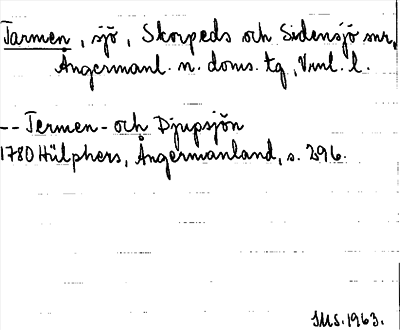 Tarmen, sjö, Skorpeds och Sidensjö snr,
Ångermanl. n. doms. tg, Vnnl. l.
-- Termen- och Djupsjön
1780 Hülphers, Ångermanland, s. 296.
SMS. 1963.